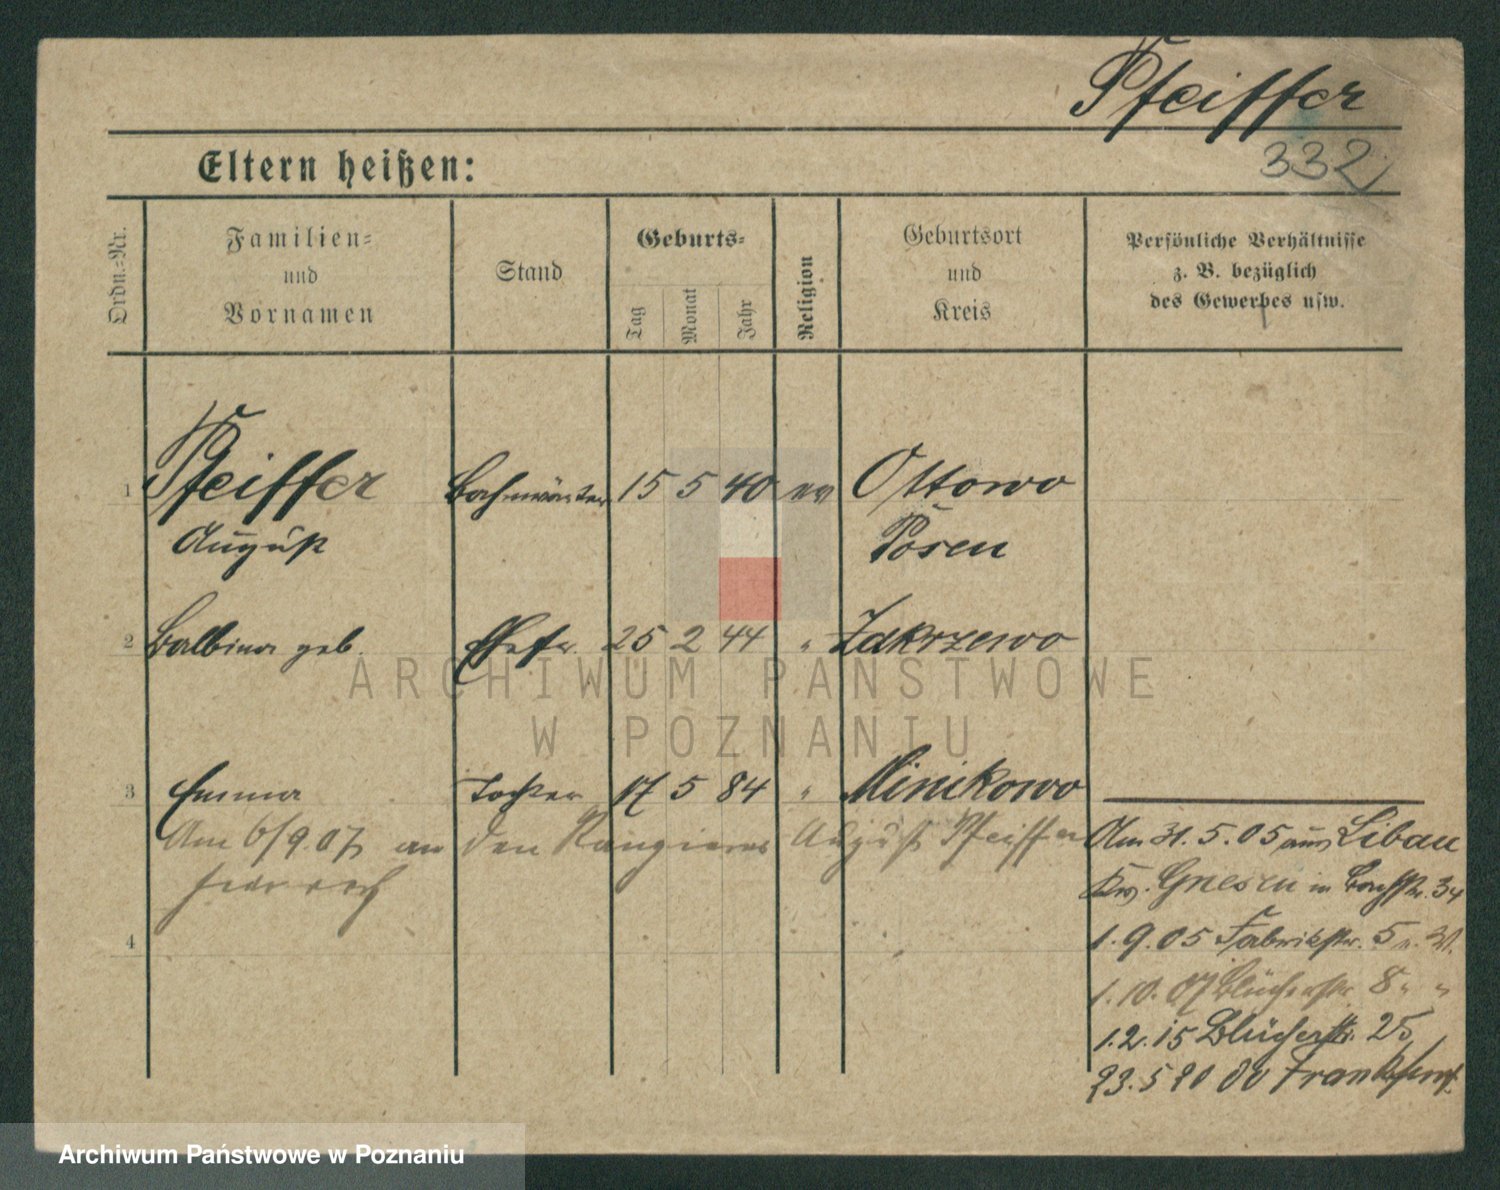 Pfeiffer
332
Eltern heißen:
Ordn.-Nr.
Familien-
und
Vornamen
Stand
Geburts-
Tag
Monat
Jahr
Religion
Geburtsort
und
Kreis
Persönliche Verhältnisse
z. B. bezüglich
des Gewerbes usw.
1 Pfeiffer Bahnwärter 15 5 40 ev Ottowo
August Posen
2 Balbina geb. Ehefr. 25 2 44 " Zakrzewo
3 Emma Tochter 17 5 84 " Minikowo
Am 6/9.07 an den Rangierer August Pfeiffer
hier noch
4
Am 31.5.05 aus Libau
Krs. Gnesen in Bachstr. 34
1.9.05 Fabrikstr. 5
1.10.07 Blücherstr 8 " "
1.2.15 Blücherstr. 25
23.5 20 Frankfurt
ARCHIWUM PAŃSTWOWE
W POZNANIU
Archiwum Państwowe w Poznaniu